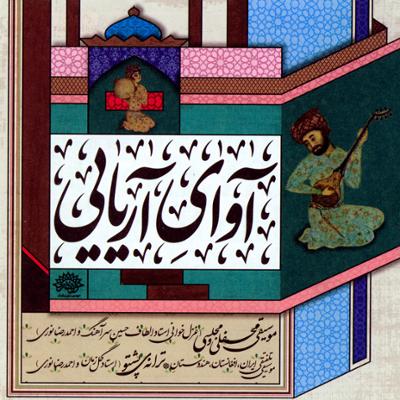 آوای آریایی
موسیقی محفلی و مجلسی (غزل خوانی استاد الطاف حسین سرآهنگ و احمد رضا نوری)
موسیقی تلفیقی ایران، افغانستان، هندوستان ترانه‌ی پشتو (استاد گل زمان و احمد رضا نوری)